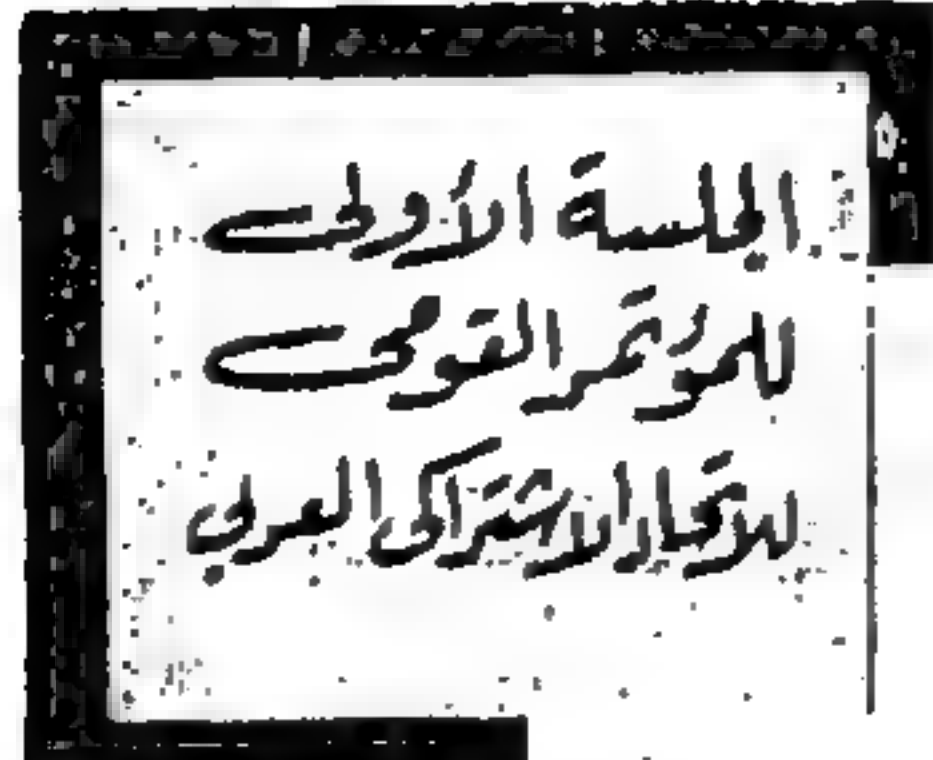 الجلسة الأولى
للمؤتمر القومى
للاتحاد الاشتراكى العربي